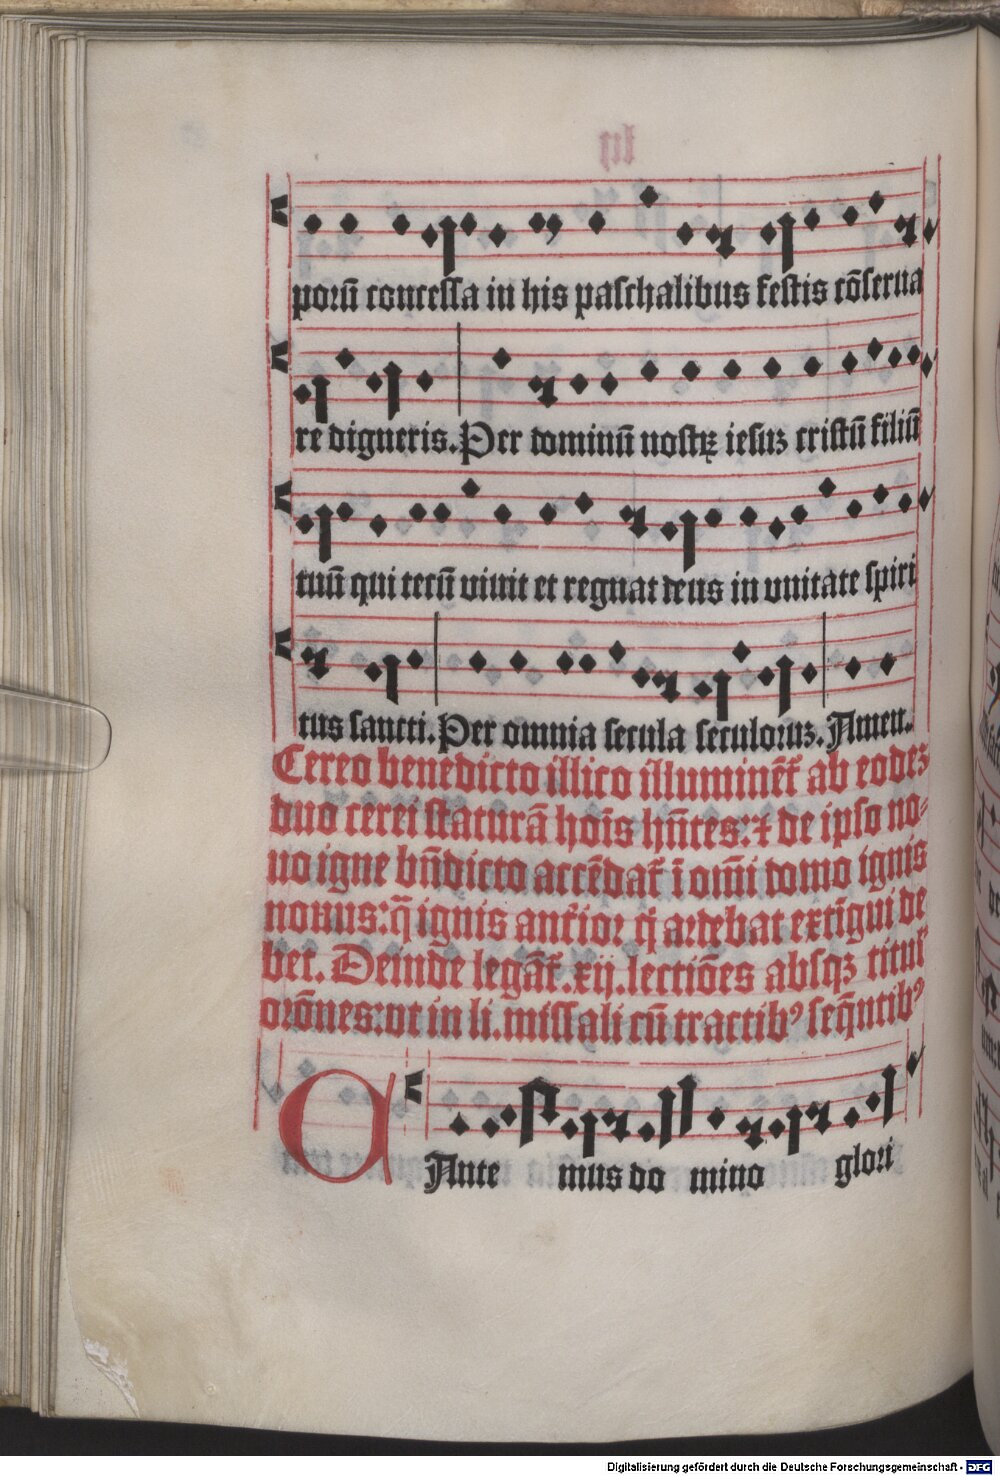 porū concessa in his paschalibus festis cōserua
re digneris. Per dominū nostrꝝ iesuꝫ cristū filiū
tuū qui tecū uiuit et regnat deus in unitate spiri
tus sancti. Per omnia secula seculoruꝫ. Amen.
Cereo benedicto illico illuminēt̄ ab eodeꝫ
duo cerei staturā hoīs hn̄tes: ⁊ de ipso no-
uo igne bn̄dicto accēdat̄ ī oīni domo ignis
nouus: q̄ ignis ant̄ior q̄ ardebat extīgui de
bet. Deinde legāt̄ .xij. lectiōes absqꝫ titul'
orōnes: vt in li. missali cū tractibꝰ seq̄ntibꝰ
CAnte mus do mino glori
Digitalisierung gefördert durch die Deutsche Forschungsgemeinschaft - DFG